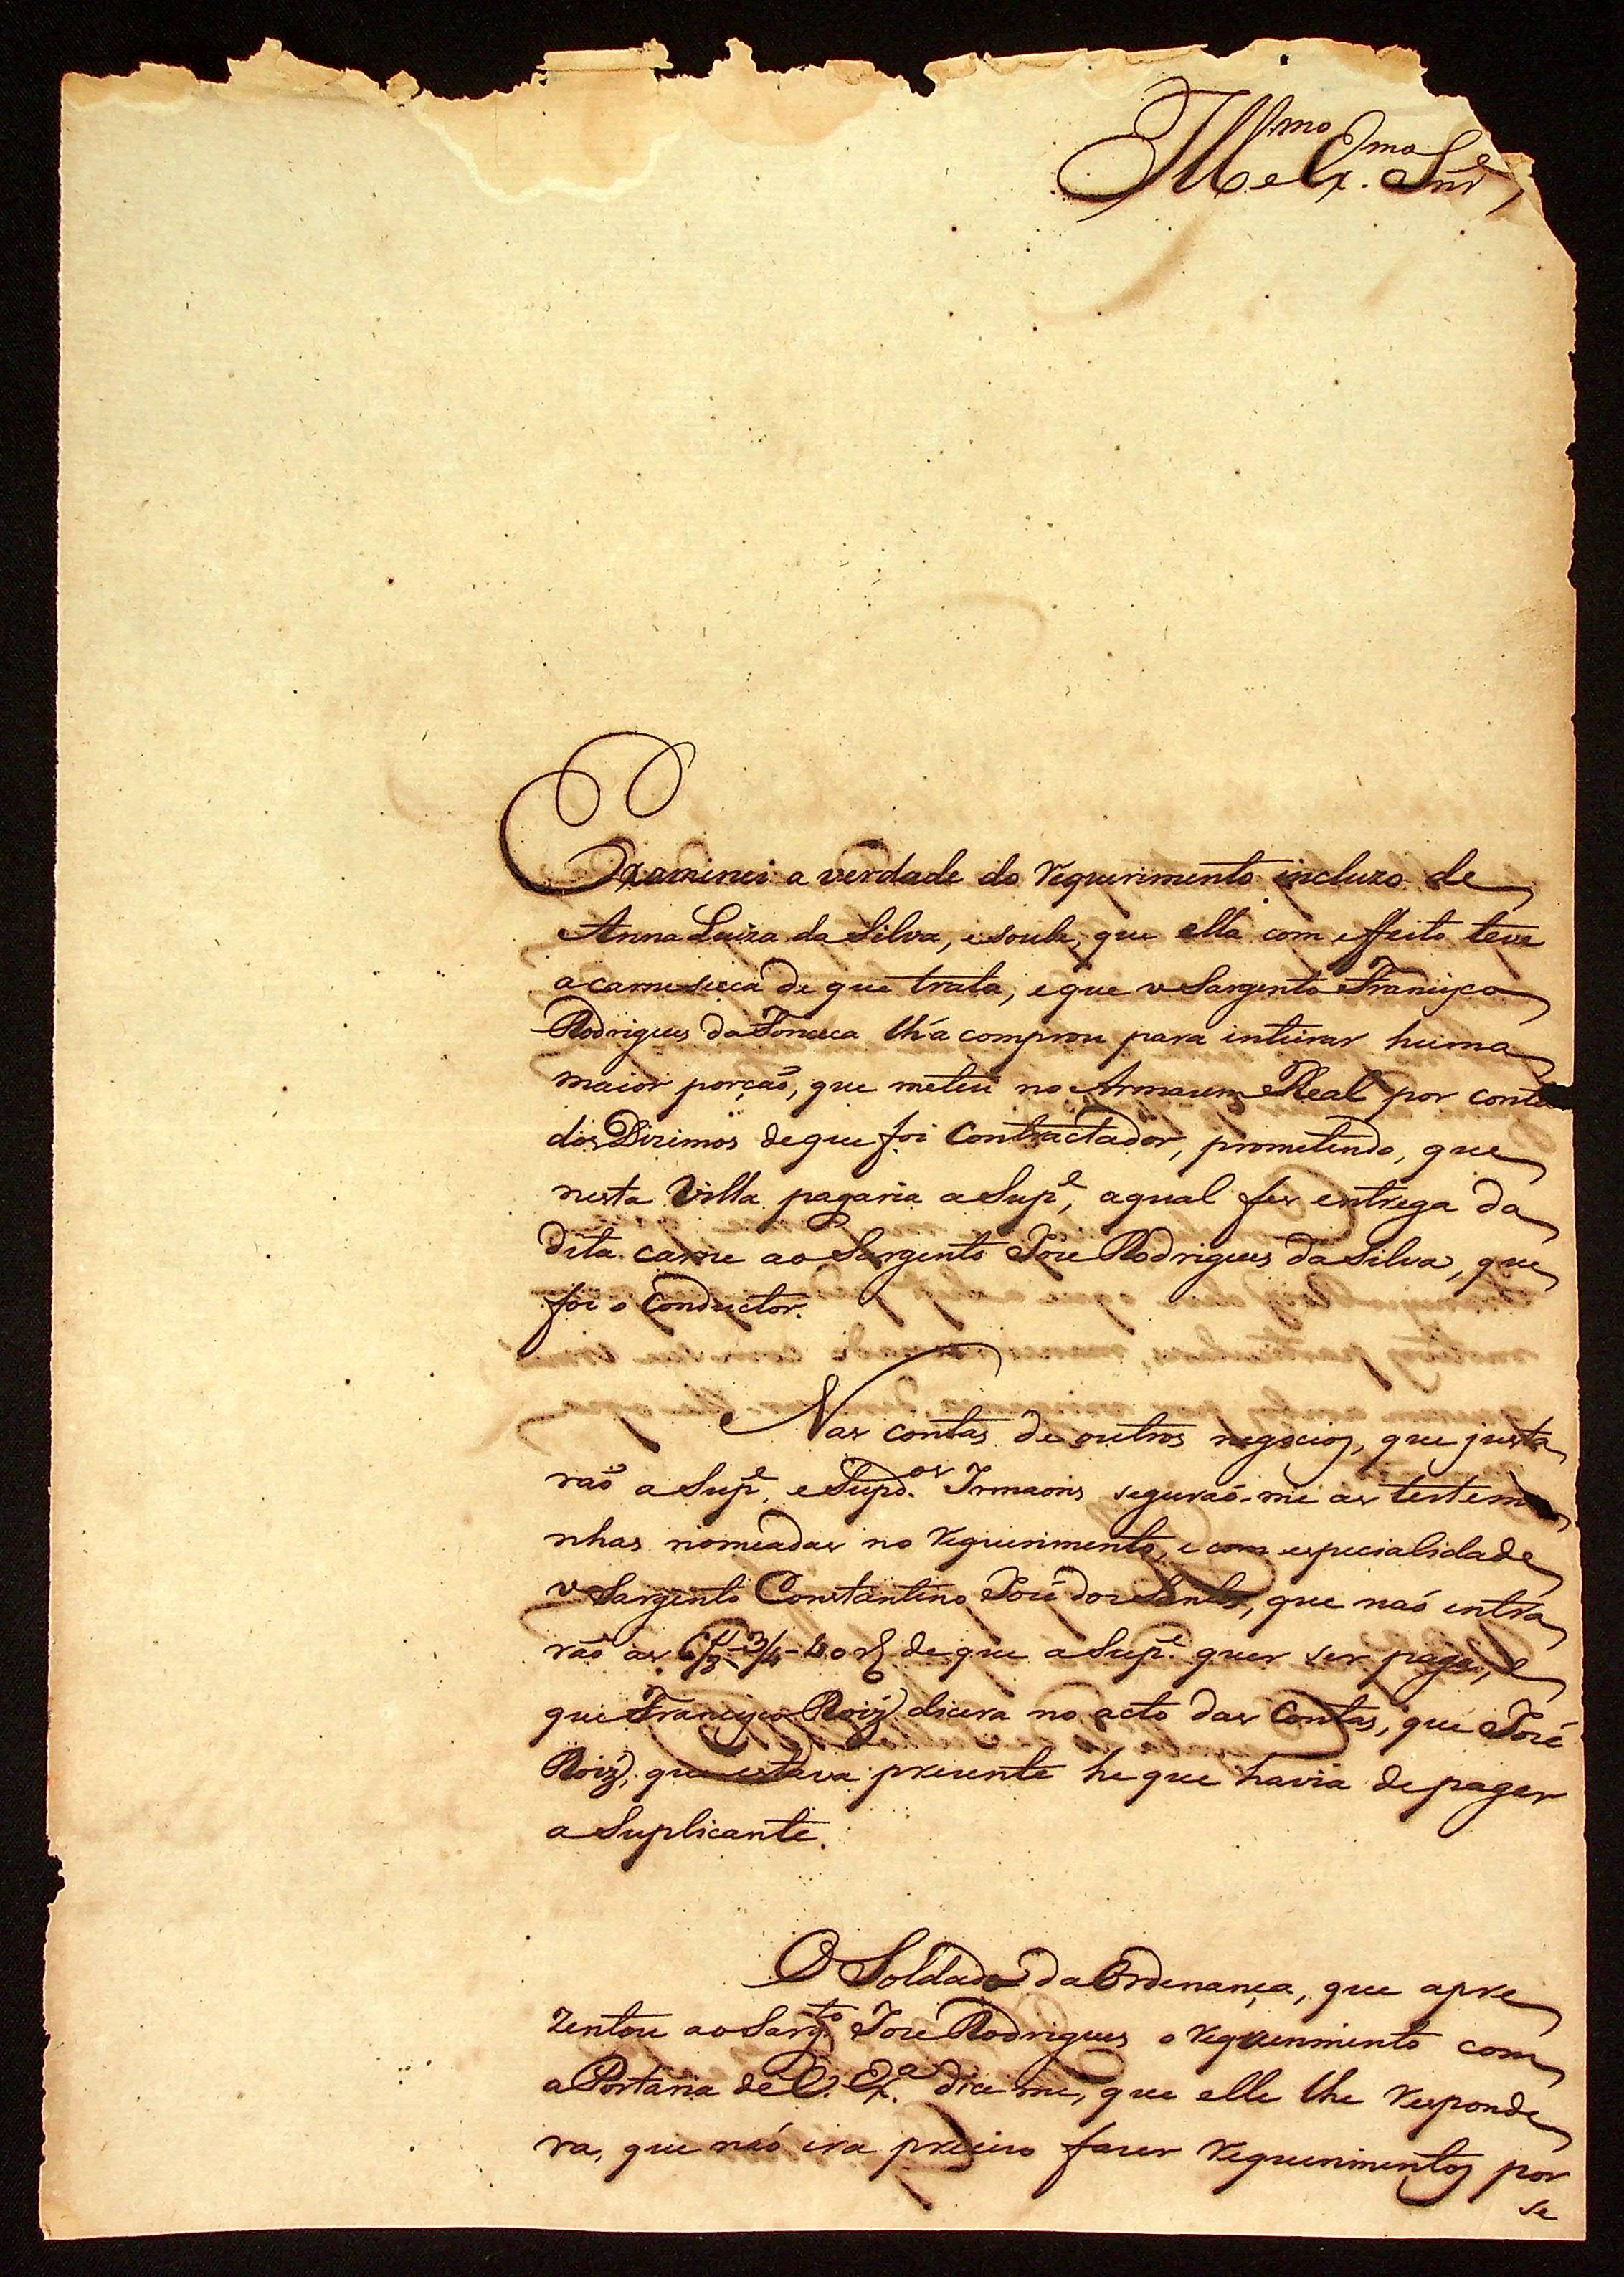 Ill.mo e Ex.mo Snr.
Examinei a verdade do requerimento incluzo de
Anna Luiza da Silva, e soube, que ella com effeito teve
a carne seca de que trata, e que o Sargento Francisco
Rodrigues da Fonceca lh'a comprou para inteirar huma
maior porção, que meteu no Armazem Real por conta
dos Dizimos de que foi Contractador, prometendo, que
nesta Villa pagaria a Sup.e, a qual fez entrega da
dita carne ao Sargento Jozé Rodrigues da Silva, que
foi o Conductor.
Nas contas de outros negocios, que justa
raõ a Sup.e e Supd.os Irmaons seguraõ-me as testem
nhas nomeadas no requerimento, e com especialidade
o Sargento Constantino Jozé dos Santos, que naõ entra
raõ as de que a Sup.e quer ser paga, e
que Francisco Roiz dicera no acto das Contas, que Jozé
Roiz, que estava prezente he que havia de pagar
a Suplicante.
O Soldado da Ordenança, que apre
zentou ao Sarg.to Jozé Rodrigues o requerimento com
a Portaria de V. Ex.a dice me, que elle lhe responde
ra, que naõ era precizo fazer requerimentos por
se